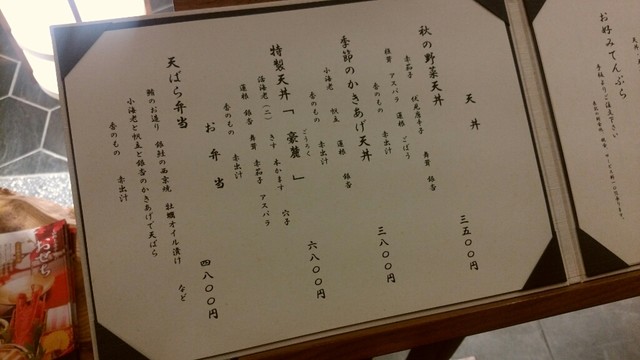 天丼
秋の野菜天丼 三五〇〇円
赤茄子 伏見唐辛子 舞茸 銀杏
椎茸 アスパラ 蓮根 ごぼう
香のもの 赤出汁
季節のかきあげ天丼 三八〇〇円
小海老 帆立 蓮根 銀杏
香のもの 赤出汁
特製天丼「豪麓」 六八〇〇円
ごうろく
活海老(二) きす 本かます 穴子
蓮根 銀杏 舞茸 赤茄子 アスパラ
香のもの 赤出汁
お弁当
天ぷら弁当 四八〇〇円
鮪のお造り 銀鮭の西京焼 牡蠣オイル漬け など
小海老と帆立と銀杏のかきあげ天ぷら
香のもの 赤出汁
お好みてんぷら
おせち